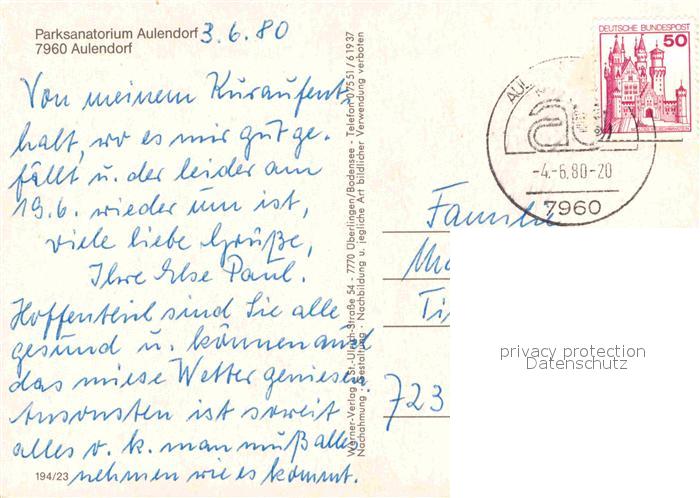 Parksanatorium Aulendorf 3.6.80
7960 Aulendorf
Von meinem Kuraufent-
halt, wo es mir gut ge-
fällt u. der leider am
19.6. wieder um ist,
viele liebe Grüße,
Ihre Else Paul.
Hoffentlich sind Sie alle
gesund u. können auch
das miese Wetter geniesen.
Ansonsten ist soweit
alles o.k. man muß alles
nehmen wie es kommt.
194/23
Werner-Verlag St.-Ulrich-Straße 54 - 7770 Überlingen/Bodensee - Telefon 07551/61937
Nachahmung - Gestaltung - Nachbildung u. jegliche Art bildlicher Verwendung verboten
DEUTSCHE BUNDESPOST
50
AUL
-4.-6.80-20
7960
Familie
723
privacy protection
Datenschutz